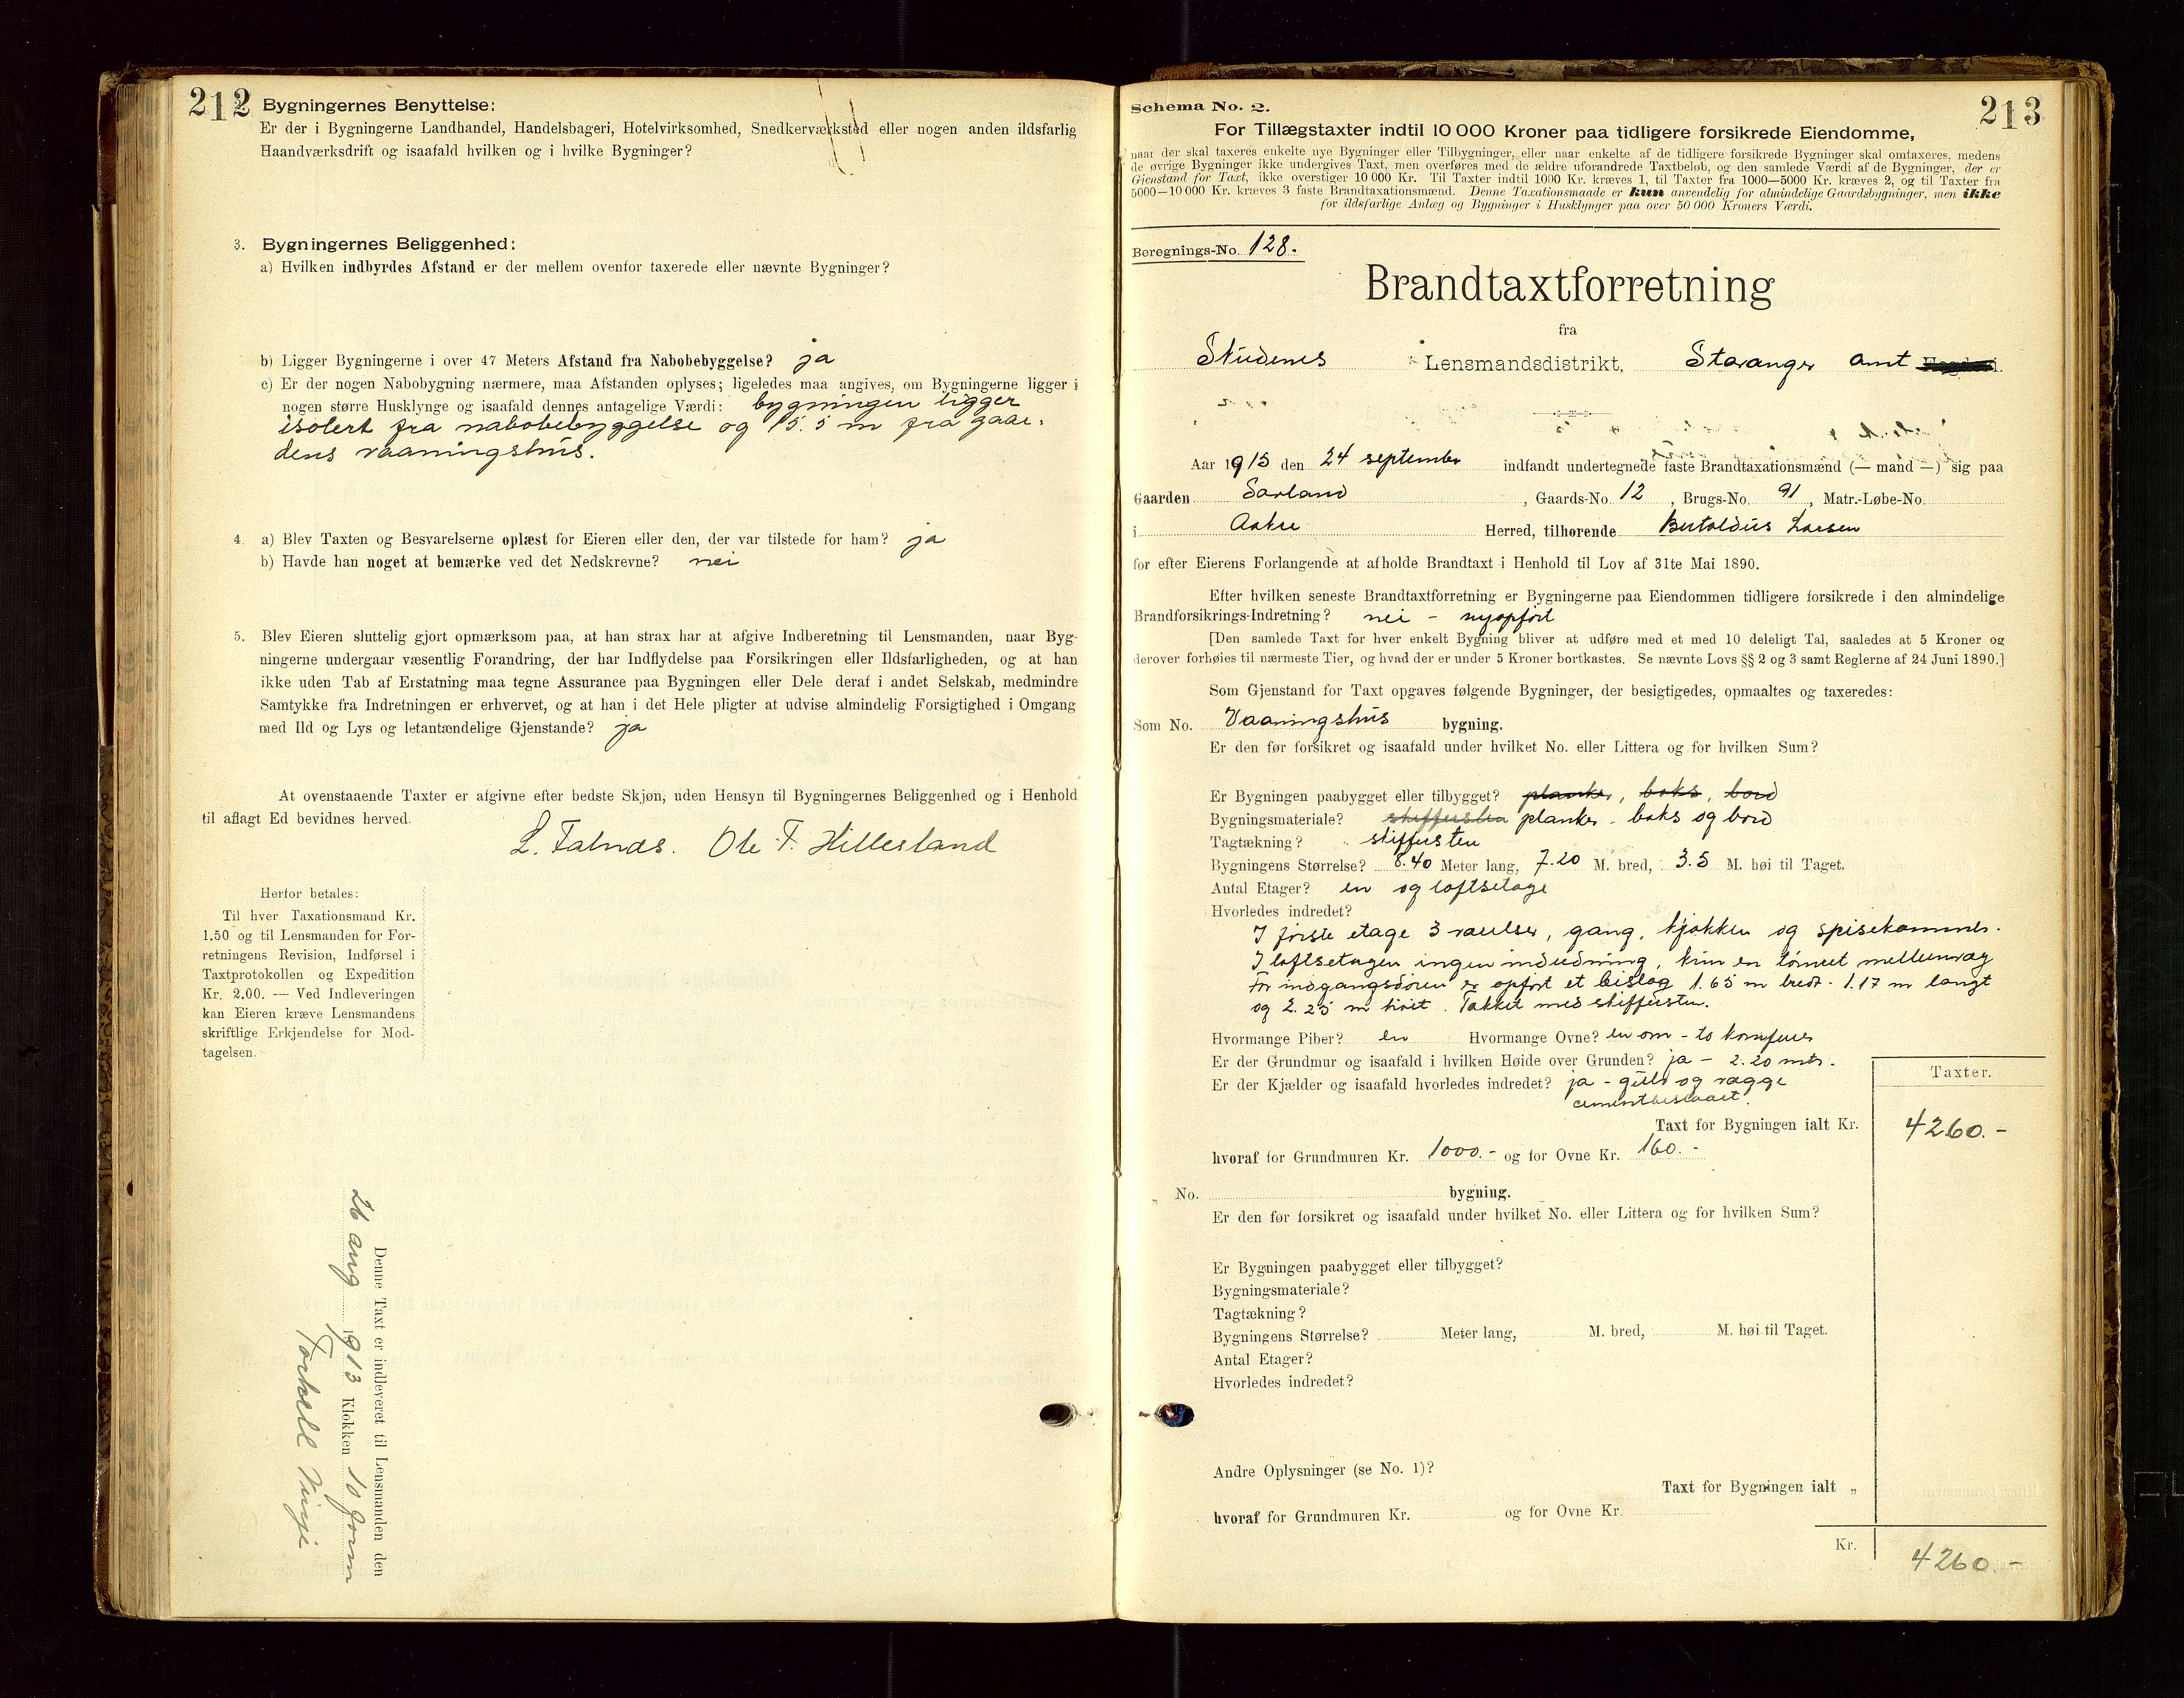 212
Bygningernes Benyttelse:
Er der i Bygningerne Landhandel, Handelsbageri, Hotelvirksomhed, Snedkerværksted eller nogen anden ildsfarlig
Haandværksdrift og isaafald hvilken og i hvilke Bygninger?
3. Bygningernes Beliggenhed:
a) Hvilken indbyrdes Afstand er der mellem ovenfor taxerede eller nævnte Bygninger?
b) Ligger Bygningerne i over 47 Meters Afstand fra Nabobebyggelse? ja
c) Er der nogen Nabobygning nærmere, maa Afstanden oplyses; ligeledes maa angives, om Bygningerne ligger i
nogen større Husklynge og isaafald dennes antagelige Værdi: bygningen ligger
isolert fra nabobebyggelse og 15.5 m fra gaar-
dens vaaningshus.
4. a) Blev Taxten og Besvarelserne oplæst for Eieren eller den, der var tilstede for ham? ja
b) Havde han noget at bemærke ved det Nedskrevne? nei
5. Blev Eieren sluttelig gjort opmærksom paa, at han strax har at afgive Indberetning til Lensmanden, naar Byg-
ningerne undergaar væsentlig Forandring, der har Indflydelse paa Forsikringen eller Ildsfarligheden, og at han
ikke uden Tab af Erstatning maa tegne Assurance paa Bygningen eller Dele deraf i andet Selskab, medmindre
Samtykke fra Indretningen er erhvervet, og at han i det Hele pligter at udvise almindelig Forsigtighed i Omgang
med Ild og Lys og letantændelige Gjenstande? ja
At ovenstaaende Taxter er afgivne efter bedste Skjøn, uden Hensyn til Bygningernes Beliggenhed og i Henhold
til aflagt Ed bevidnes herved.
L. Falnæs. Ole T. Hillesland
Herfor betales:
Til hver Taxationsmand Kr.
1.50 og til Lensmanden for For-
retningens Revision, Indførsel i
Taxtprotokollen og Expedition
Kr. 2.00. — Ved Indleveringen
kan Eieren kræve Lensmandens
skriftlige Erkjendelse for Mod-
tagelsen.
Denne Taxt er indleveret til Lensmanden den
26 aug 1913 Klokken 10 form
Torkell Vinje
Schema No. 2.
213
For Tillægstaxter indtil 10 000 Kroner paa tidligere forsikrede Eiendomme,
naar der skal taxeres enkelte nye Bygninger eller Tilbygninger, eller naar enkelte af de tidligere forsikrede Bygninger skal omtaxeres, medens
de øvrige Bygninger ikke undergives Taxt, men overføres med de ældre uforandrede Taxtbeløb, og den samlede Værdi af de Bygninger, der er
Gjenstand for Taxt, ikke overstiger 10 000 Kr. Til Taxter indtil 1000 Kr. kræves 1, til Taxter fra 1000—5000 Kr. kræves 2, og til Taxter fra
5000—10 000 Kr. kræves 3 faste Brandtaxationsmænd. Denne Taxationsmaade er kun anvendelig for almindelige Gaardsbygninger, men ikke
for ildsfarlige Anlæg og Bygninger i Husklynger paa over 50 000 Kroners Værdi.
Beregnings-No. 128.
Brandtaxtforretning
fra
Skudenes Lensmandsdistrikt, Stavanger amt
Aar 1915 den 24 september indfandt undertegnede faste Brandtaxationsmænd (— mand —) sig paa
Gaarden Sørland, Gaards-No. 12, Brugs-No. 91, Matr.-Løbe-No.
i Aakre Herred, tilhørende Bertoldus Larsen
for efter Eierens Forlangende at afholde Brandtaxt i Henhold til Lov af 31te Mai 1890.
Efter hvilken seneste Brandtaxtforretning er Bygningerne paa Eiendommen tidligere forsikrede i den almindelige
Brandforsikrings-Indretning? nei - nyopført
[Den samlede Taxt for hver enkelt Bygning bliver at udføre med et med 10 deleligt Tal, saaledes at 5 Kroner og
derover forhøies til nærmeste Tier, og hvad der er under 5 Kroner bortkastes. Se nævnte Lovs §§ 2 og 3 samt Reglerne af 24 Juni 1890.]
Som Gjenstand for Taxt opgaves følgende Bygninger, der besigtigedes, opmaaltes og taxeredes:
Som No. Vaaningshus bygning.
Er den før forsikret og isaafald under hvilket No. eller Littera og for hvilken Sum?
Er Bygningen paabygget eller tilbygget? planker, boks, bord
Bygningsmateriale? skiffersten planker - boks og bord
Tagtækning? skiffersten
Bygningens Størrelse? 8.40 Meter lang, 7.20 M. bred, 3.5 M. høi til Taget.
Antal Etager? en og loftsetage
Hvorledes indredet?
I første etage 3 værelser, gang, kjøkken og spisekammer.
I loftsetagen ingen indredning, kun en tømret mellemvæg
For indgangsdøren er opført et bislag 1.65 m bredt - 1.17 m langt
og 2.25 m høit. Takket med skiffersten.
Hvormange Piber? en Hvormange Ovne? en ovn - to komfurer
Er der Grundmur og isaafald i hvilken Høide over Grunden? ja - 2.20 mtr.
Er der Kjælder og isaafald hvorledes indredet? ja - gulv og vægge
cementbeslaaet.
Taxter.
Taxt for Bygningen ialt Kr. 4260.-
hvoraf for Grundmuren Kr. 1000.- og for Ovne Kr. 160.-
„ No. bygning.
Er den før forsikret og isaafald under hvilket No. eller Littera og for hvilken Sum?
Er Bygningen paabygget eller tilbygget?
Bygningsmateriale?
Tagtækning?
Bygningens Størrelse? Meter lang, M. bred, M. høi til Taget.
Antal Etager?
Hvorledes indredet?
Andre Oplysninger (se No. 1)?
Taxt for Bygningen ialt „
hvoraf for Grundmuren Kr. og for Ovne Kr.
Kr. 4260.-